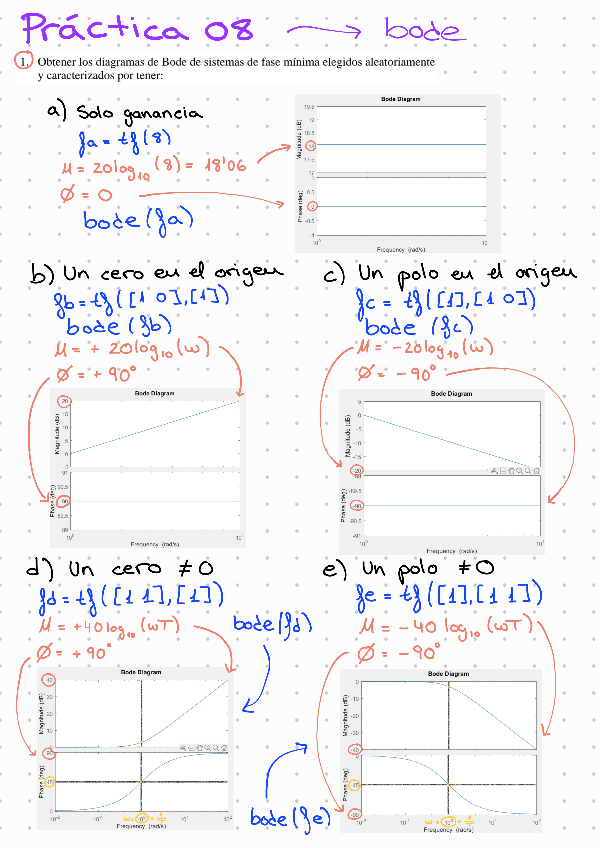 Práctica 08 → bode
1. Obtener los diagramas de Bode de sistemas de fase mínima elegidos aleatoriamente
y caracterizados por tener:
a) Solo ganancia
fa = tf(8)
M = 20log₁₀(8) = 18'06
Ø = 0
bode(fa)
Bode Diagram
Magnitude (dB)
19.5
19
18.5
18
17.5
17
Phase (deg)
0.5
0
-0.5
-1
10⁰
10
Frequency (rad/s)
b) Un cero en el origen
fb = tf([1 0],[1])
bode(fb)
M = + 20log₁₀(w)
Ø = + 90°
Bode Diagram
Magnitude (dB)
20
15
10
5
0
-5
Phase (deg)
91
90.5
90
89.5
89
10⁰
10
Frequency (rad/s)
c) Un polo en el origen
fc = tf([1],[1 0])
bode(fc)
M = -20log₁₀(w)
Ø = -90°
Bode Diagram
Magnitude (dB)
5
0
-5
-10
-15
-20
Phase (deg)
-89
-89.5
-90
-90.5
-91
10⁰
10¹
Frequency (rad/s)
d) Un cero ≠ 0
fd = tf([1 1],[1])
M = +40log₁₀(wT)
Ø = +90°
bode(fd)
Bode Diagram
Magnitude (dB)
40
30
20
10
0
Phase (deg)
90
45
0
10⁻²
10⁻¹
10⁰
10¹
10²
Frequency (rad/s)
e) Un polo ≠ 0
fe = tf([1],[1 1])
M = -40 log₁₀(wT)
Ø = -90°
bode(fe)
Bode Diagram
Magnitude (dB)
0
-10
-20
-30
-40
Phase (deg)
0
-45
-90
10⁻²
10⁻¹
10⁰
10¹
10²
Frequency (rad/s)